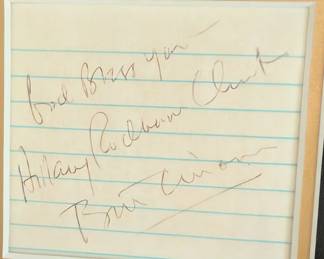 God Bless you—
Hillary Rodham Clinton
Bill Clinton